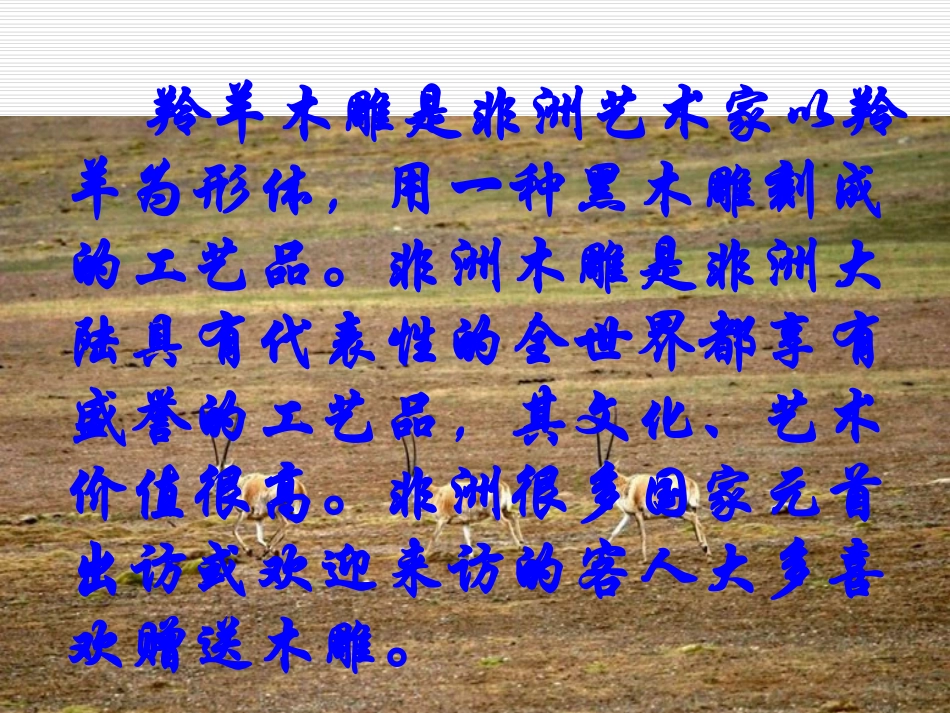 羚羊木雕是非洲艺术家以羚
羊为形体，用一种黑木雕刻成
的工艺品。非洲木雕是非洲大
陆具有代表性的全世界都享有
盛誉的工艺品，其文化、艺术
价值很高。非洲很多国家元首
出访或欢迎来访的客人大多喜
欢赠送木雕。